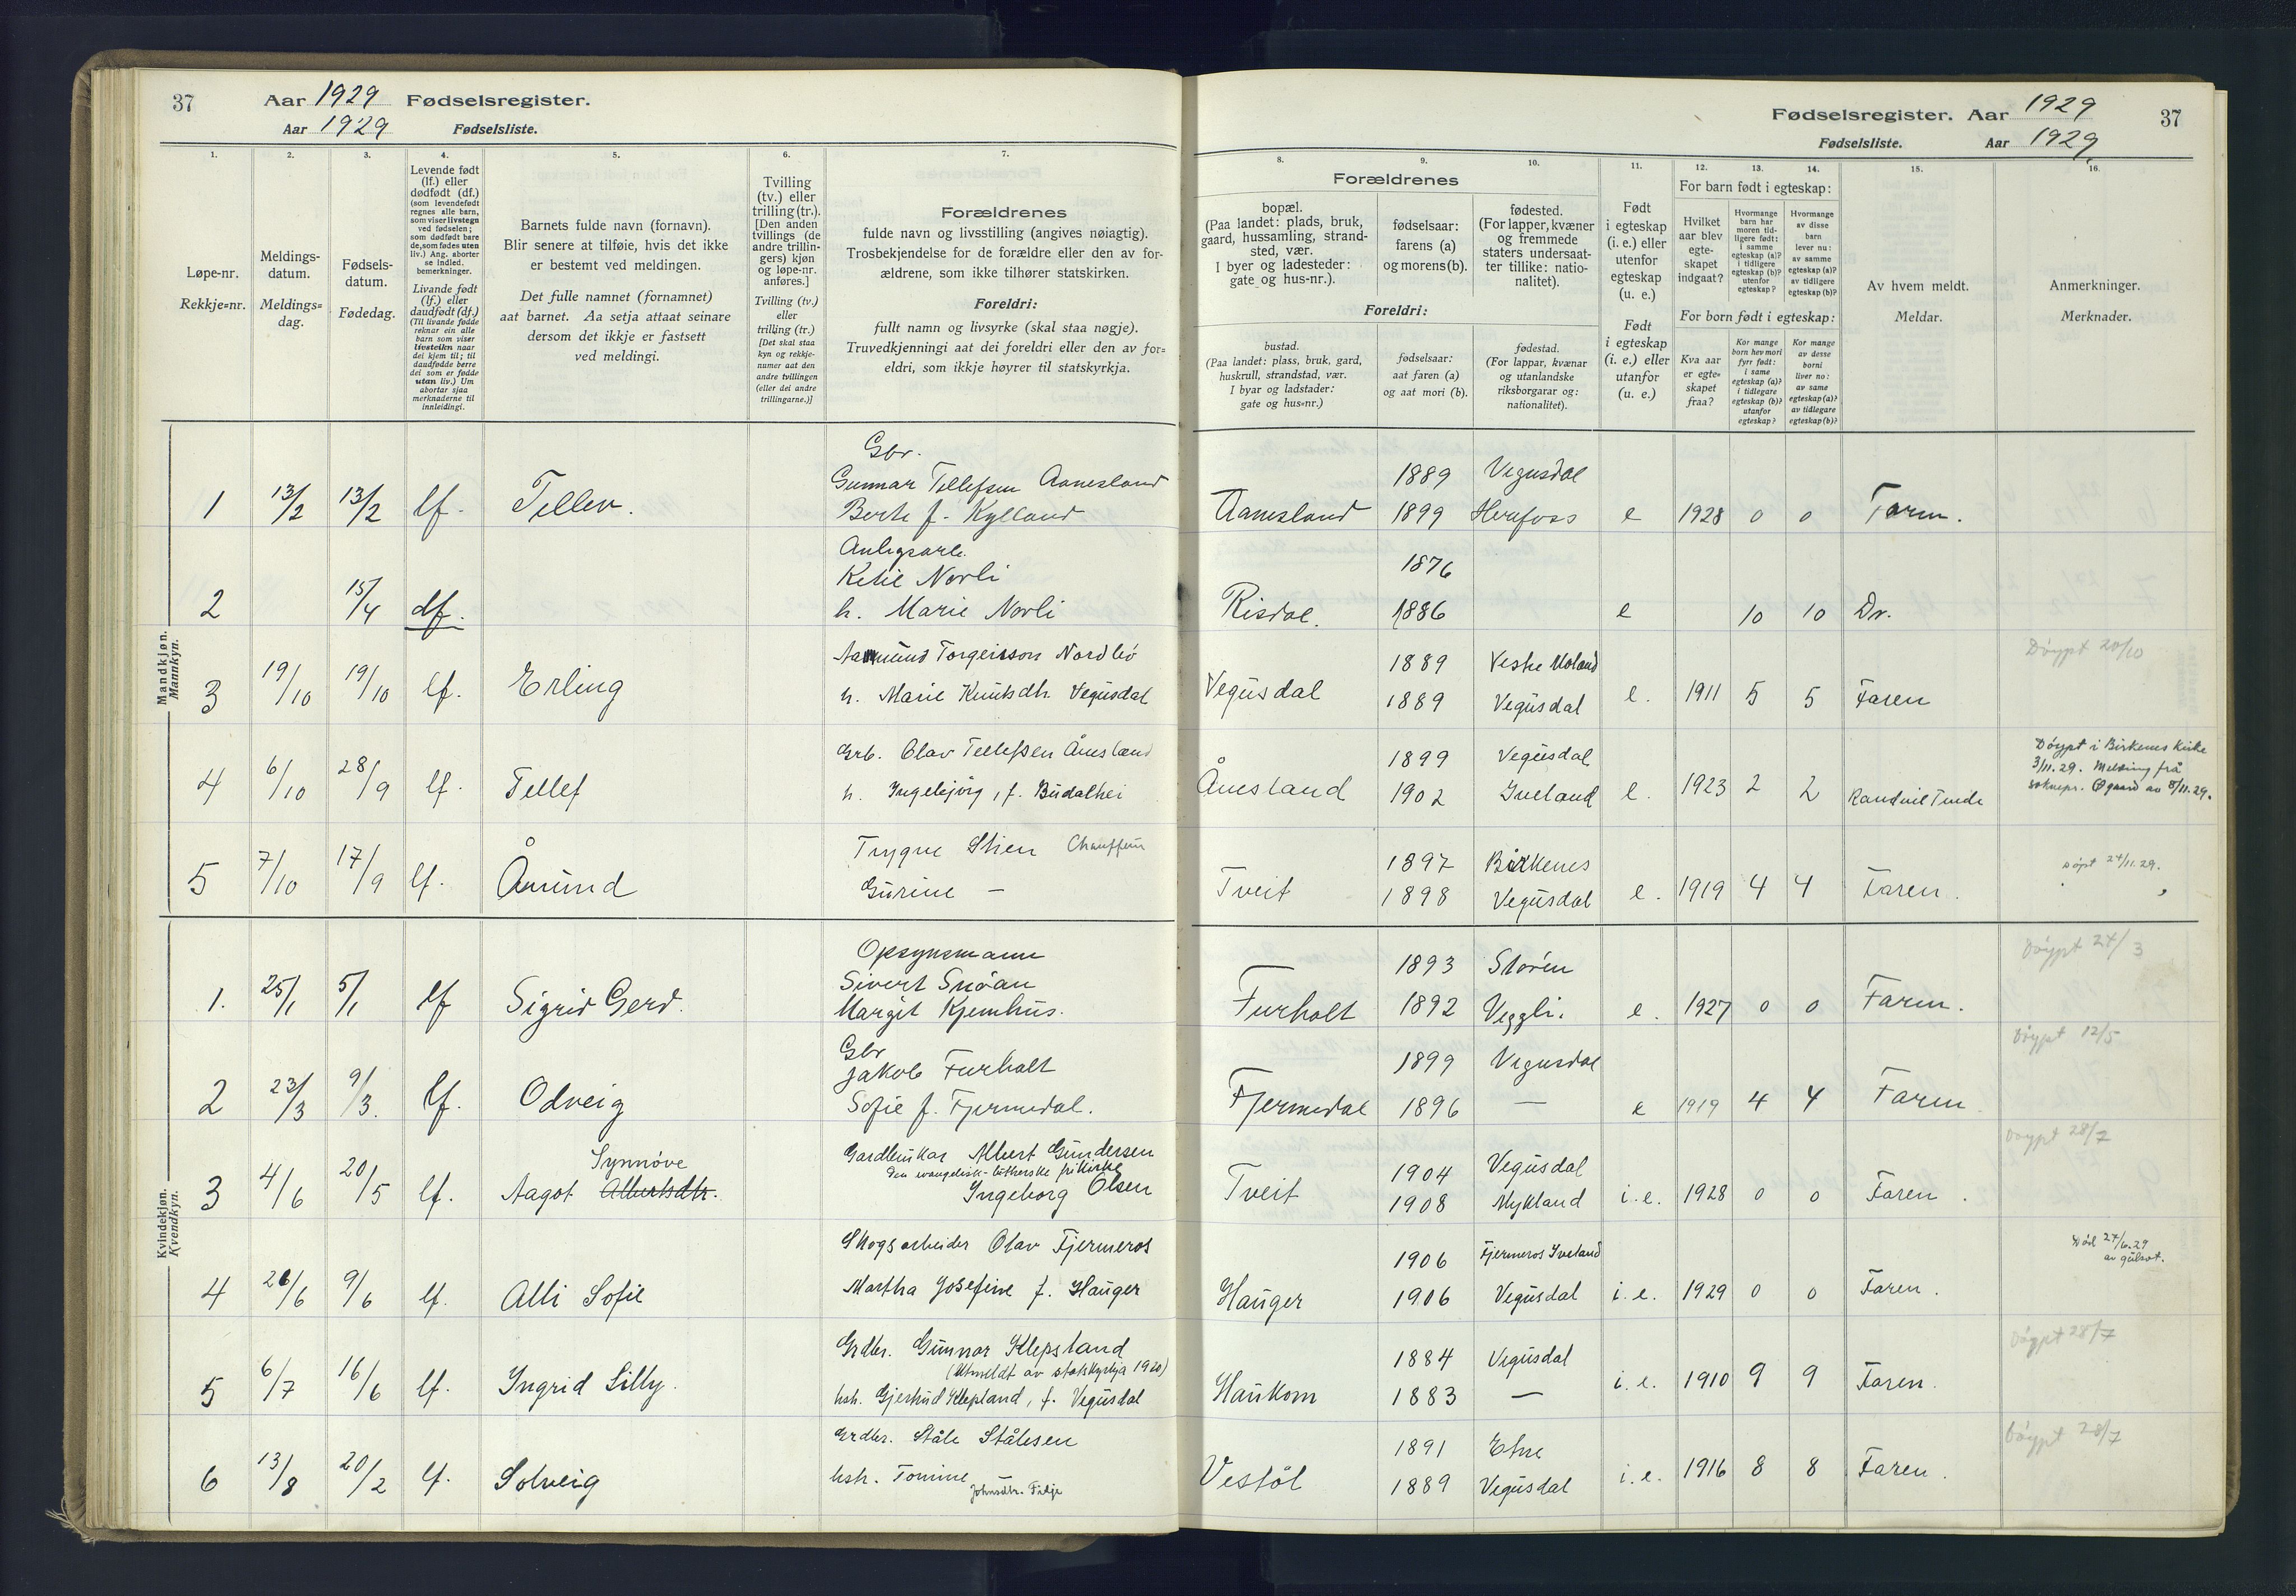 37 Aar 1929 Fødselsregister.
Aar 1929 Fødselsliste.
1.
2.
3.
4.
5.
6.
7.
Løpe-nr.
Rekkje=nr.
Meldings-
datum.
Meldings=
dag.
Fødsels-
datum.
Fødedag.
Levende født
(lf.) eller
dødfødt (df.)
(som levendefødt
regnes alle barn,
som viser livstegn
ved fødselen;
som dødfødt bare
de, som fødes uten
liv.) Ang. aborter
se indled.
bemerkninger.
Livande født
(lf.) eller
daudfødt (df.)
(Til livande fødde
reknar ein alle
barn som viser
livsteikn naar
dei kjem til; til
daudfødde berre
dei som er fødde
utan liv.) Um
abortar sjaa
merknaderne til
innleidingi.
Barnets fulde navn (fornavn).
Blir senere at tilføie, hvis det ikke
er bestemt ved meldingen.
Det fulle namnet (fornamnet)
aat barnet. Aa setja attaat seinare
dersom det ikkje er fastsett
ved meldingi.
Tvilling
(tv.) eller
trilling (tr.).
[Den anden
tvillings (de
andre trillin-
gers) kjøn
og løpe-nr.
anføres.]
Tvilling (tv.)
eller
trilling (tr.)
[Det skal staa
kyn og rekkje-
numer aat den
andre tvillingen
(eller dei andre
trillingarne.)]
Forældrenes
fulde navn og livsstilling (angives nøiagtig).
Trosbekjendelse for de forældre eller den av for-
ældrene, som ikke tilhører statskirken.
Foreldri:
fullt namn og livsyrke (skal staa nøgje).
Truvedkjenningi aat dei foreldri eller den av for=
eldri, som ikkje høyrer til statskyrkja.
Fødselsregister. Aar 1929 37
Fødselsliste. Aar 1929
8.
9.
10.
11.
12.
13.
14.
15.
16.
Forældrenes
bopæl.
(Paa landet: plads, bruk,
gaard, hussamling, strand-
sted, vær.
I byer og ladesteder:
gate og hus-nr.).
fødselsaar:
farens (a)
og morens (b).
fødested.
(For lapper, kvæner
og fremmede
staters undersaat-
ter tillike: natio-
nalitet).
Foreldri:
bustad.
(Paa landet: plass, bruk, gard,
huskrull, strandstad, vær.
I byar og ladstader:
gate og hus=nr.)
fødselsaar:
aat faren (a)
og aat mori (b).
fødestad.
(For lappar, kvænar
og utanlandske
riksborgarar og:
nationalitet).
Født
i egteskap
(i. e.) eller
utenfor
egteskap
(u. e.)
Født
i egteskap
(i. e.) eller
utanfor
(u. e.)
For barn født i egteskap:
Hvilket
aar blev
egte-
skapet
indgaat?
Hvormange
barn har
moren tid-
ligere født:
i samme
egteskap (a)?
i tidligere
egteskap (b)?
utenfor
egteskap?
Hvormange
av disse
barn
lever nu:
av samme
egteskap (a)?
av tidligere
egteskap (b)?
For born født i egteskap:
Kva aar
er egte-
skapet
fraa?
Kor mange
born hev mori
fyrr født:
i same
egteskap (a)?
i tidlegare
egteskap (b)?
utanfor
egteskap?
Kor mange
av desse
borni
liver no:
av same
egteskap (a)?
av tidlegare
egteskap (b)?
Av hvem meldt.
Meldar.
Anmerkninger.
Merknader.
Mandkjøn.
Mannkyn.
Gbr.
Gunnar Tellefsen Aanesland 1889 Vegusdal
1 13/2 13/2 lf. Tellev. Berte f. Kylland Aanesland 1899 Herefoss e 1928 0 0 Faren.
Ketil Norli 1876
2 15/4 df. h. Marie Norli Risdal. 1886 e 10 10 Dr.
Aamund Torgeirsson Nordbö 1889 Døypt 20/10
3 19/10 19/10 lf. Erling h. Marie Knutsdtr. Vegusdal Vegusdal 1889 Vegusdal e. 1911 5 5 Faren
Grb. Olav Tellefsen Ånesland 1899 Vegusdal Döypt i Birkenes kirke
3/11.29. Melding frå
4 6/10 28/9 lf. Tellef h. Ingebjörg, f. Budalhei Ånesland 1902 Iveland e. 1923 2 2 soknepr. Øgaard av 8/11.29.
Trygve Stien Chauffeur 1897 Birkenes Döpt 24/11.29.
5 7/10 17/9 lf. Åmund Gurine — Tveit 1898 Vegusdal e. 1919 4 4 Faren.
Kvindekjøn.
Kvendkyn.
Opsynsmann
Sivert Snöan 1893 Stören Döypt 24/3
1. 25/1 5/1 lf Sigrid Gerd. Margit Kjemhus. Furholt 1892 Veggli. e. 1927 0 0 Faren.
Gbr
Jakob Furholt 1899 Vegusdal Döypt 12/5
2 23/3 9/3. lf. Odveig Sofie f. Fjermedal. Fjermedal 1896 — e 1919 4 4 Faren
Synnöve Gardbrukar Albert Gundersen 1904 Vegusdal Döypt 28/7
Den evangelisk-lutherske frikirke
3 4/6 20/5 lf. Aagot Albertsdtr. Ingeborg Olsen Tveit 1908 Mykland i.e. 1928 0 0 Faren.
Skogsarbeider Olav Fjermeros 1906 Fjermeros Iveland Död 24/6.29
av gulsot.
4 26/6 9/6 lf. Alli Sofie Martha Josefine f. Hauger Hauger 1906 Vegusdal i.e. 1929 0 0 Faren.
Grdbr. Gunnar Klepsland 1884 Vegusdal Döypt 28/7
(Utmeldt av statskyrkja 1920)
5 6/7 16/6 lf. Ingrid Lilly. hsh. Gjertrud Klepland, f. Vegusdal Haukom 1883 — i.e. 1910 9 9 Faren.
Grdbr. Ståle Stålesen 1891 Etne Döypt 28/7
6 13/8 20/2 lf. Solveig hsh. Tomine Johnsdtr. Vestöl 1889 Vegusdal i.e. 1916 8 8 Faren.